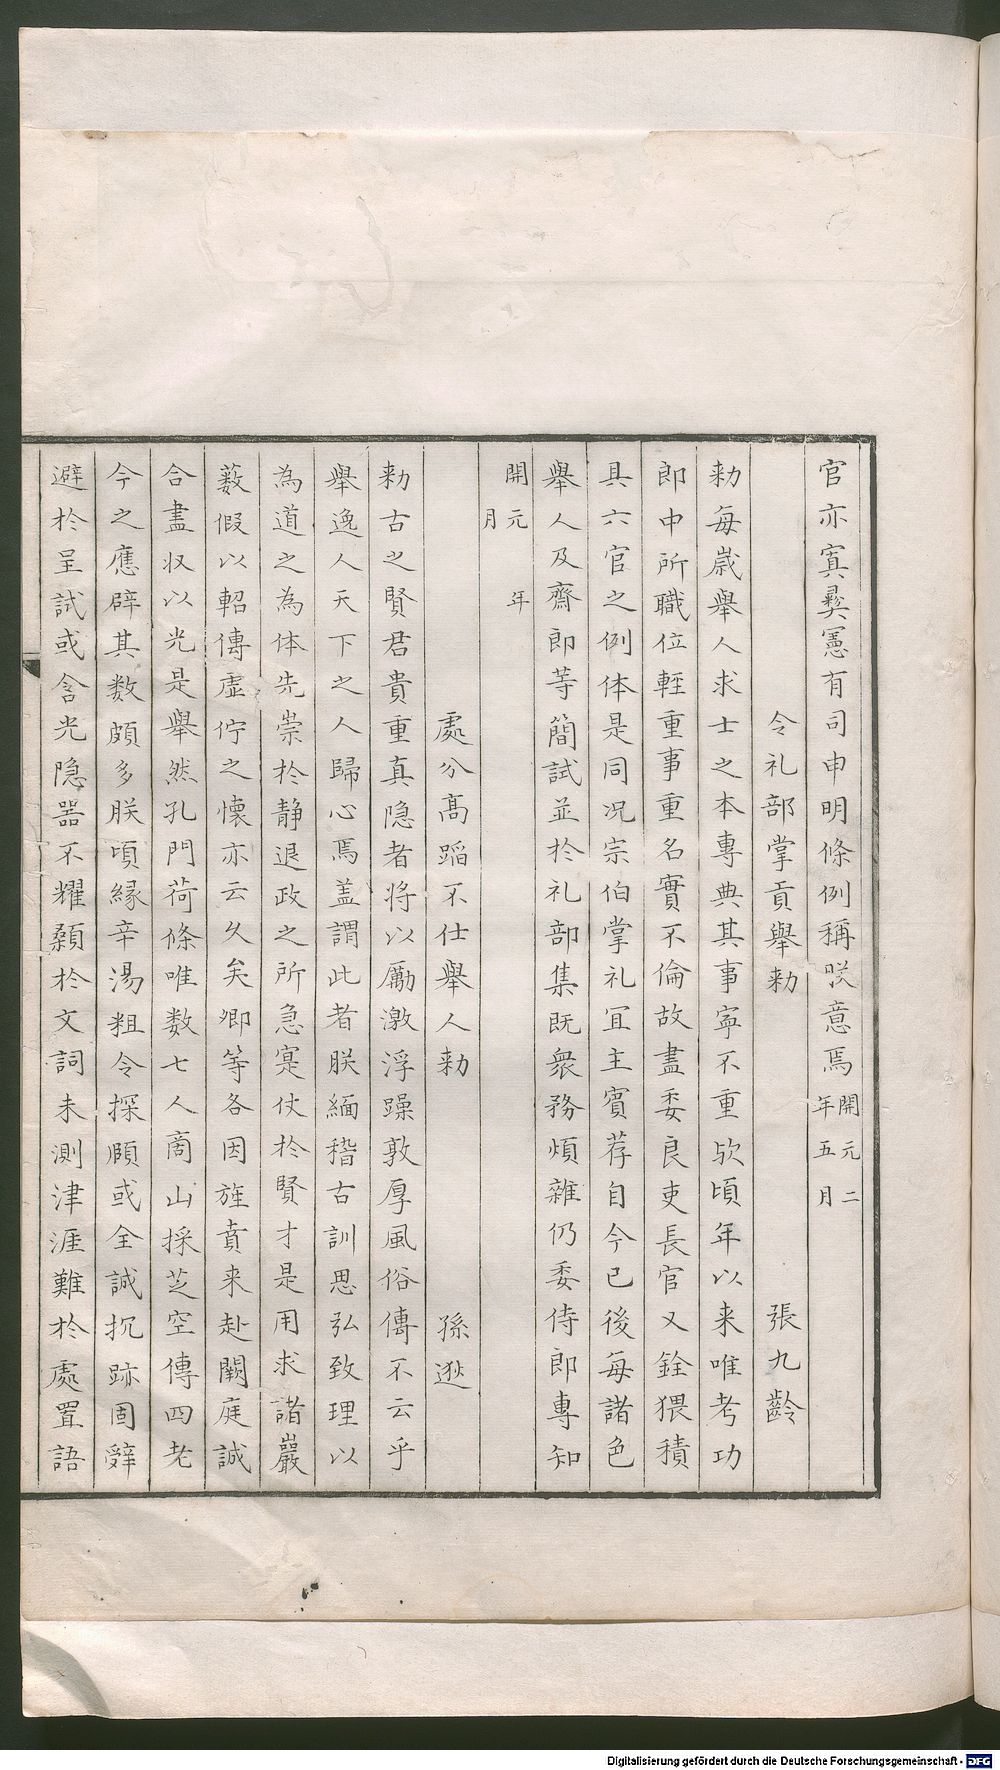 官亦寘彝憲有司申明條例稱朕意焉開元二年五月
令礼部掌貢舉勑 張九齡
勑每歲舉人求士之本專典其事寧不重欤頃年以来唯考功
郎中所職位輊重事重名實不倫故盡委良吏長官又銓猥積
具六官之例体是同况宗伯掌礼冝主賓荐自今已後每諸色
舉人及齋郎等簡試並於礼部集既衆務煩雜仍委侍郎專知
開元 年 月
處分高蹈不仕舉人勑 孫逖
勑古之賢君貴重真隐者将以勵激浮躁敦厚風俗傳不云乎
舉逸人天下之人歸心焉盖謂此者朕緬稽古訓思弘致理以
為道之為体先崇於静退政之所急寔仗於賢才是用求諸巖
薮假以軺傳虛佇之懷亦云久矣卿等各因旌賁来赴闕庭誠
合盡収以光是舉然孔門荷條唯数七人商山採芝空傳四老
今之應辟其数頗多朕頃縁辛湯粗令探願或全誠抗跡固辤
避於呈試或含光隐噐不耀頴於文詞未測津涯難於處置語
Digitalisierung gefördert durch die Deutsche Forschungsgemeinschaft - DFG